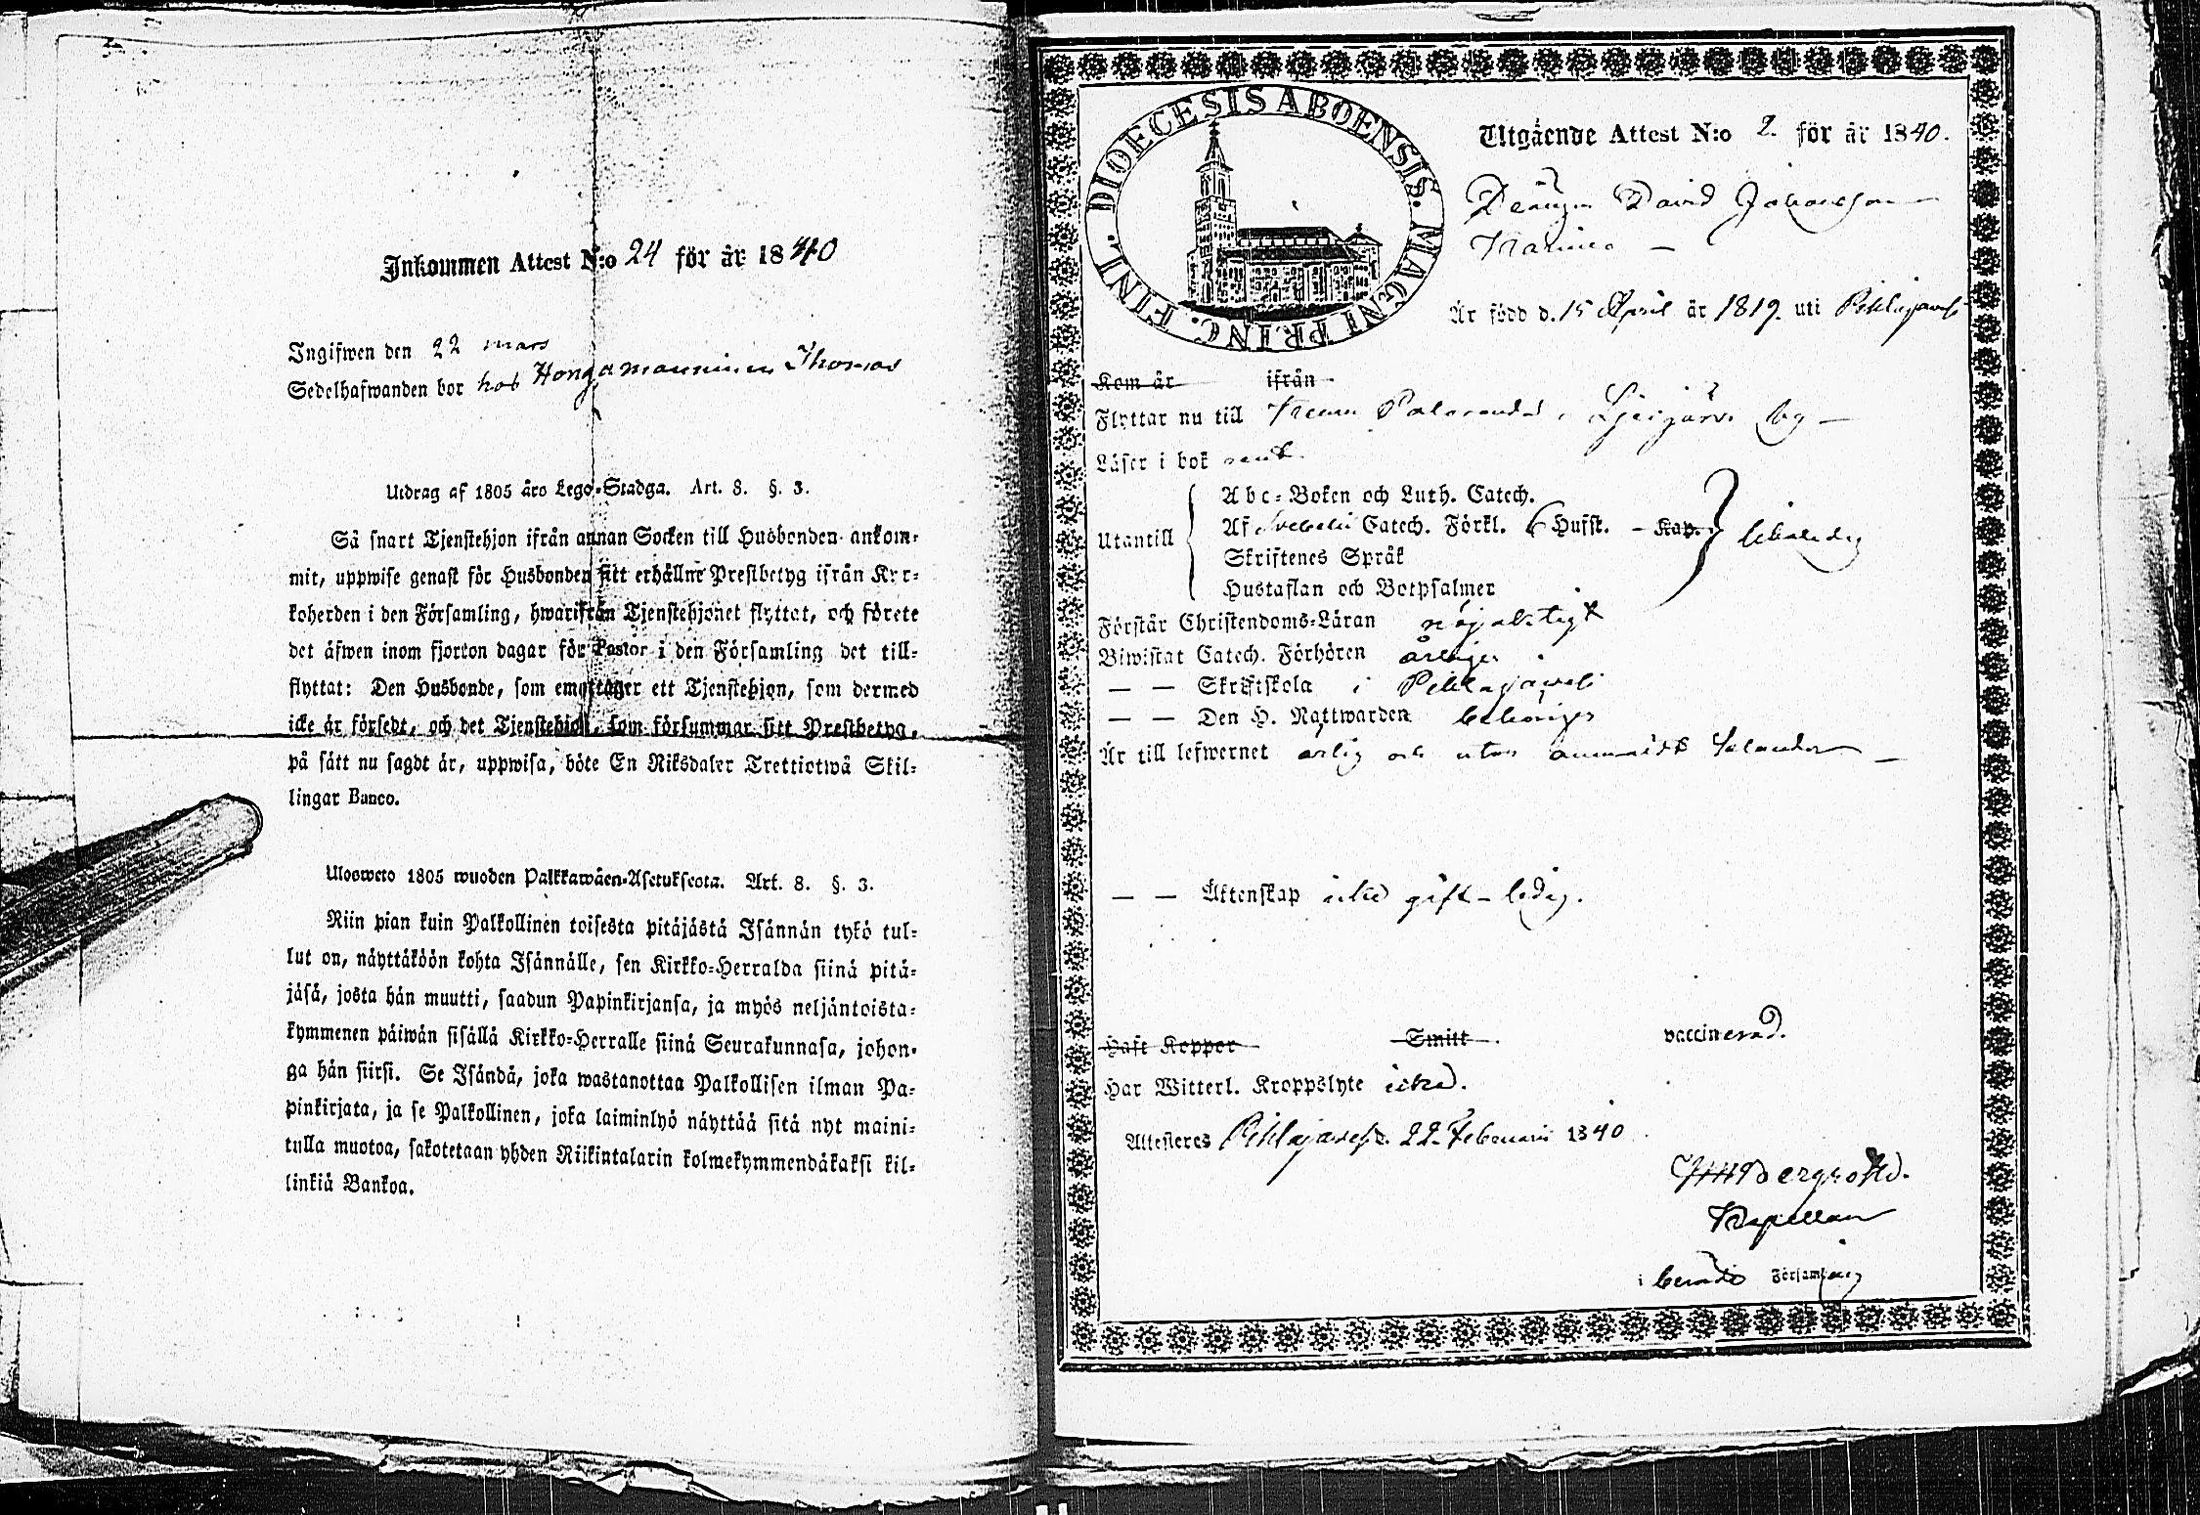 Inkommen Attest N:o 24 för år 1840
Ingifwen den 22 mars
Sedelhafwanden bor hos Hongamanninen Thomas
Utdrag af 1805 års Lego-Stadga. Art. 8. §. 3.
Så snart Tjenstehjon ifrån annan Socken till Husbonden ankom-
mit, uppwise genast för Husbonden sitt erhållne Prestbetyg ifrån Kyr-
koherden i den Församling, hwarifrån Tjenstehjonet flyttat, och förete
det äfwen inom fjorton dagar för Pastor i den Församling det till-
flyttat: Den Husbonde, som emottager ett Tjenstehjon, som dermed
icke är försedt, och det Tjenstehjon, som försummar sitt Prestbetyg,
på sätt nu sagdt är, uppwisa, böte En Riksdaler Trettiotwå Skil-
lingar Banco.
Ulosweto 1805 wuoden Palkkawäen-Asetuksesta. Art. 8. §. 3.
Niin pian kuin Palkollinen toisesta pitäjästä Isännän tykö tul-
lut on, näyttäköön kohta Isännälle, sen Kirkko-Herralda siinä pitä-
jäsä, josta hän muutti, saadun Papinkirjansa, ja myös neljäntoista-
kymmenen päiwän sisällä Kirkko-Herralle siinä Seurakunnasa, johon-
ga hän siirsi. Se Isändä, joka wastanottaa Palkollisen ilman Pa-
pinkirjata, ja se Palkollinen, joka laiminlyö näyttää sitä nyt maini-
tulla muotoa, sakotetaan yhden Riikintalarin kolmekymmendäkaksi kil-
linkiä Bankoa.
DIOECESIS ABOENSIS. MAGNI PRINC. FINL.
Utgående Attest N:o 2. för år 1840.
Drängen David Johansson
Är född d. 15 April år 1819. uti Pihlajavesi
Kom år ifrån
Flyttar nu till i by
Läser i bok rent.
Utantill
Abc-Boken och Luth. Catech.
Af Svebelii Catech. Förkl. 6 Hufst. - Kap.
Skriftenes Språk
Hustaflan och Botpsalmer
Förstår Christendoms-Läran nöjaktigt
Biwistat Catech. Förhören årligen
— — Skriftskola i Pihlajavesi
— — Den H. Nattwarden behörigen
Är till lefwernet ärlig och utan
— — Äktenskap icke gift - ledig.
Haft Koppor Smitt vaccinerad.
Har Witterl. Kroppslyte icke.
Attesteras Pihlajavesi d. 22 Februarii 1840
Bergroth.
Kapellan
i berörde Församling